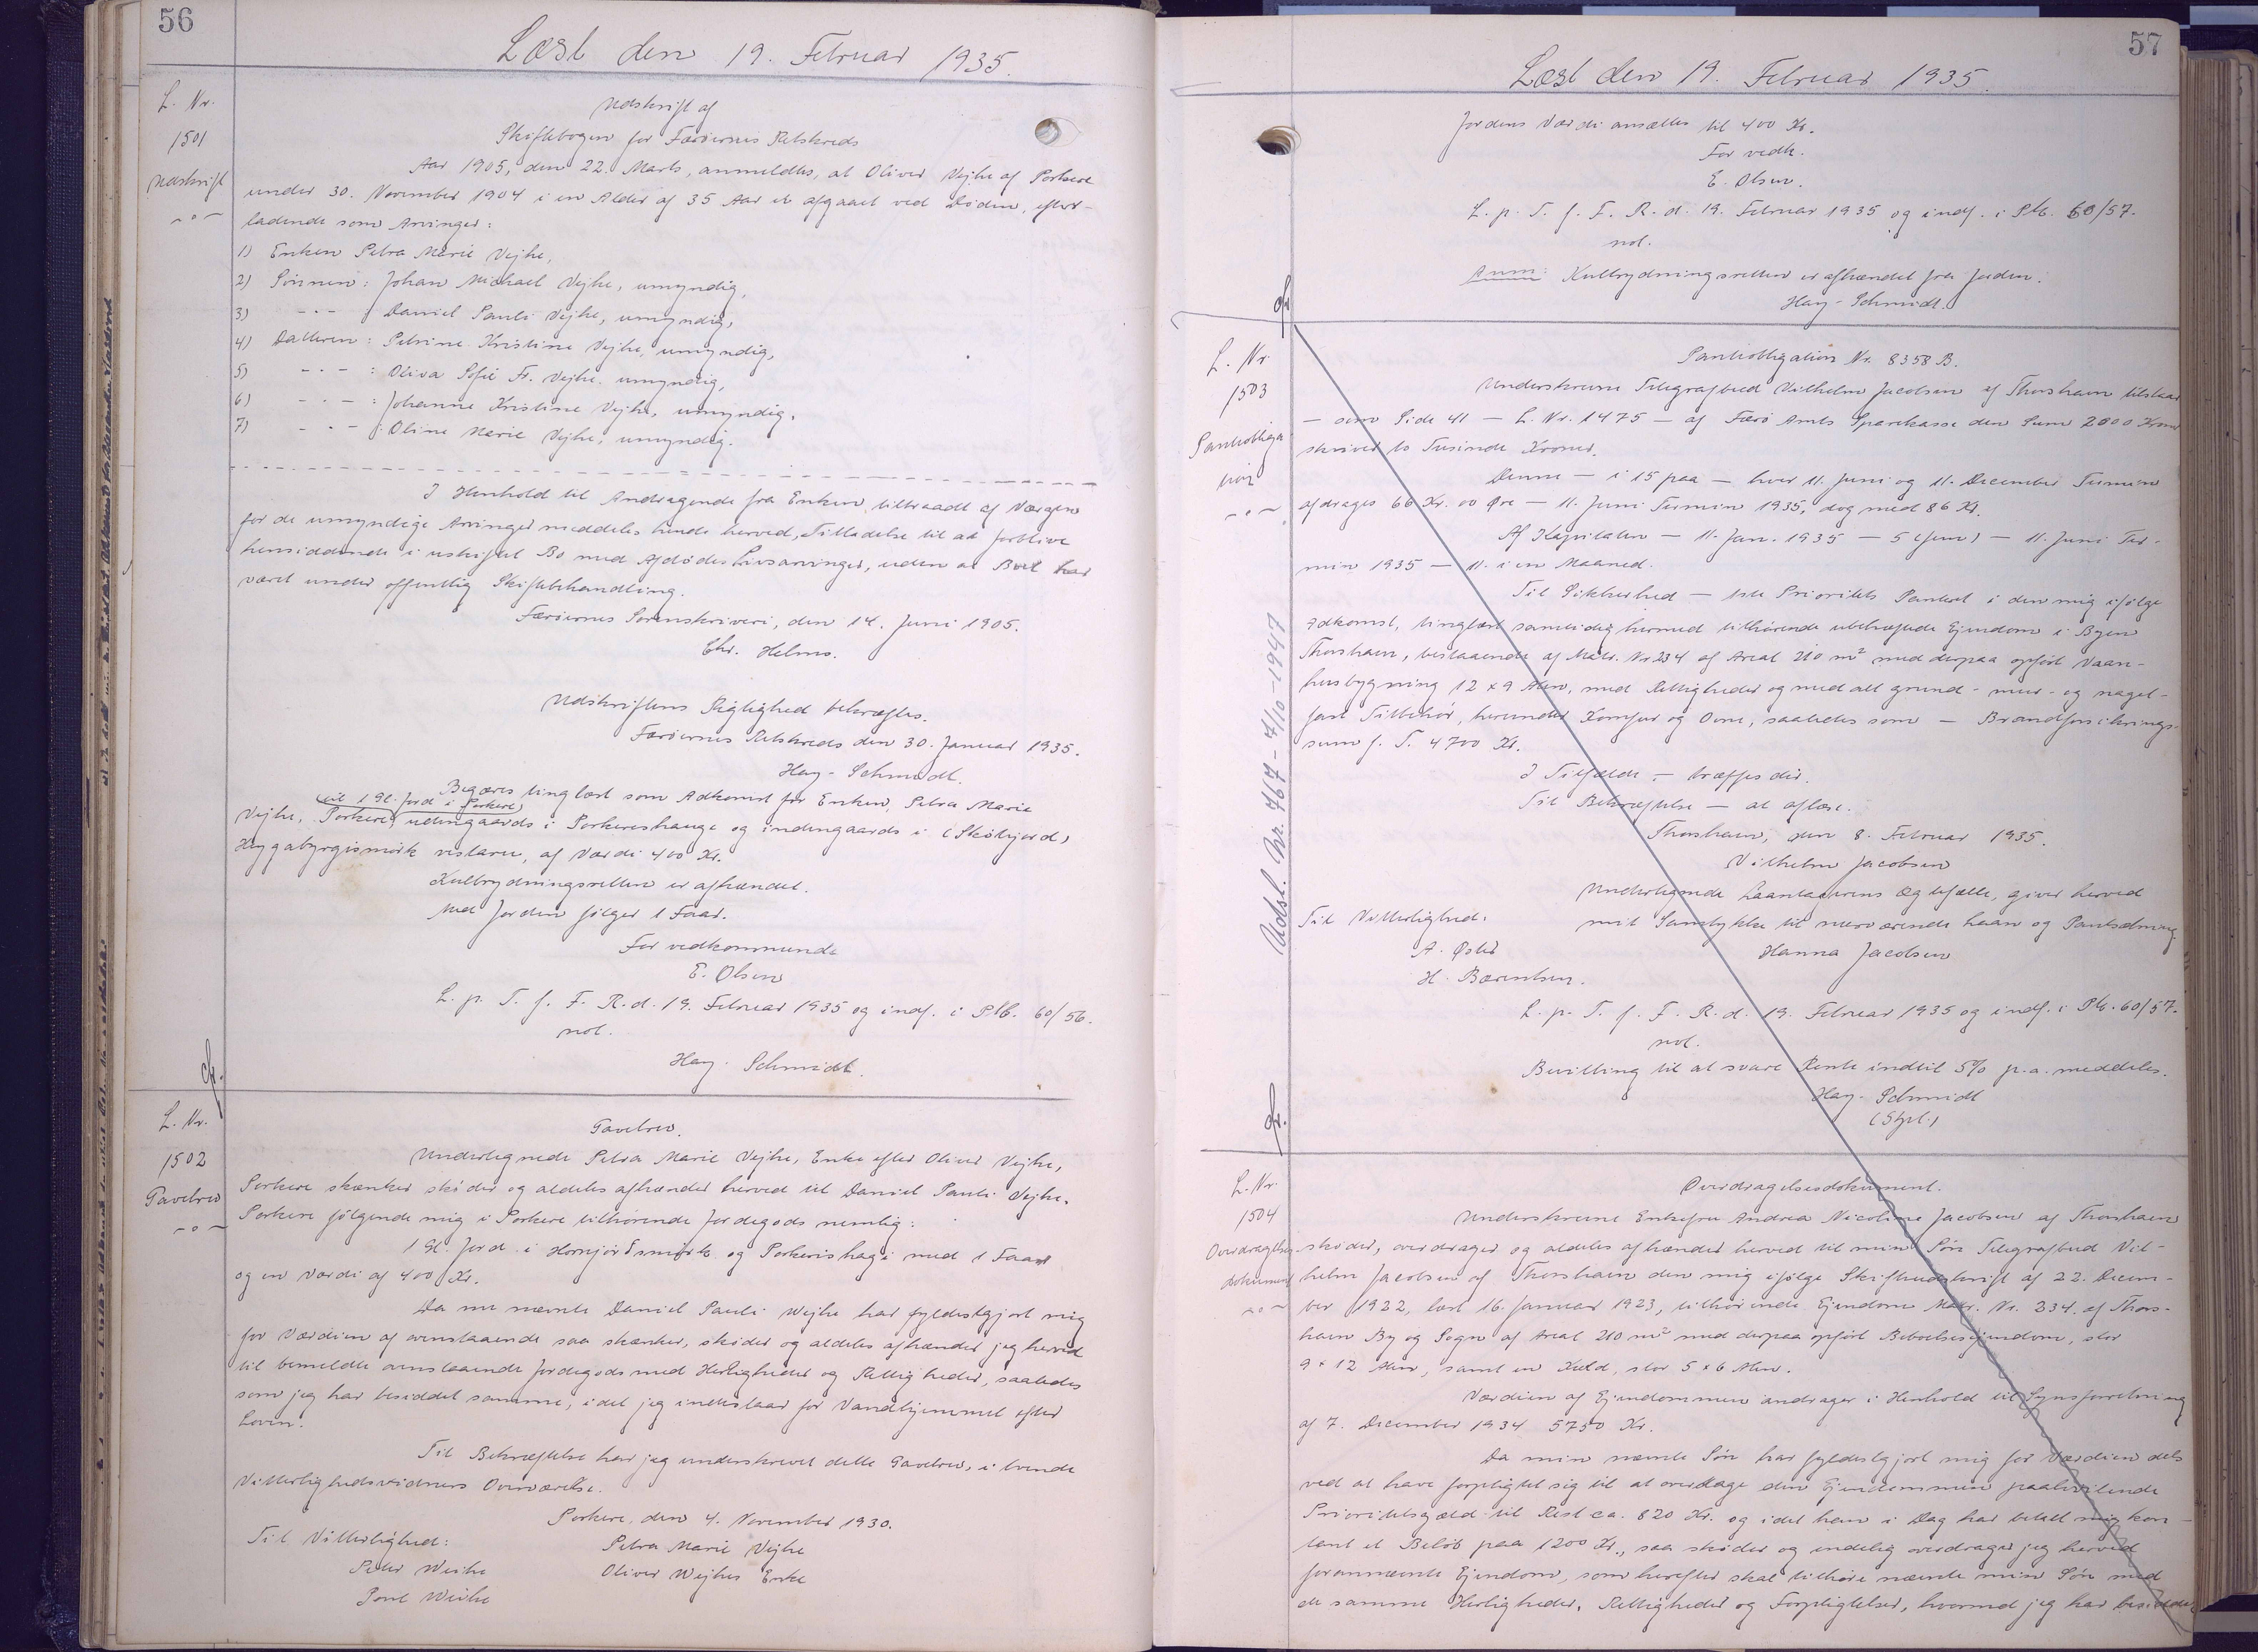 56
Læst den 19. Februar 1935.
L. Nr.
1501
Udskrift
Udskrift af
Skiftebogen for Færøernes Retskreds
Aar 1905, den 22. Marts, anmeldtes, at Oliver Vejhe af Porkere
under 30. November 1904 i en Alder af 35 Aar er afgaaet ved Døden, efter-
ladende som Arvinger:
1) Enken Petra Marie Vejhe,
2) Sønnen: Johan Michael Vejhe, umyndig,
3) - · - : Daniel Pauli Vejhe, umyndig,
4) Datteren: Petrine Kristine Vejhe, umyndig,
5) - · - : Oliva Sofie Fr. Vejhe. umyndig,
6) - · - : Johanne Kristine Vejhe, umyndig.
7) - · - : Oline Marie Vejhe, umyndig.
I Henhold til Andragende fra Enken tiltraadt af Værgen
for de umyndige Arvinger meddeles hende herved, Tilladelse til at forblive
hensiddende i uskiftet Bo med Afdødes Livsarvinger, uden at Boet har
været under offentlig Skiftebehandling.
Færøernes Sorenskriveri, den 14. Juni 1905.
Chr. Helms.
Udskriftens Rigtighed bekræftes.
Færøernes Retskreds den 30. Januar 1935.
Hay-Schmidt.
Begæres tinglæst som Adkomst for Enken, Petra Marie
(til 1 Gl. Jord i Porkere)
Vejhe, Porkere, udengaards i Porkereshauge og indengaards i (Skóhjørd)
Heygabyrgismørk vestaru, af Værdi 400 Kr.
Kulbrydningsretten er afhændet.
Med Jorden følger 1 Faar.
For vedkommende
E. Olsen
L. p. T. f. F. R. d. 19. Februar 1935 og indf. i Ptb. 60/56.
not.
Hay-Schmidt.
L. Nr.
1502
Gavebrev
Gavebrev.
Undertegnede Petra Marie Vejhe, Enke efter Oliver Vejhe,
Porkere skænker skøder og aldeles afhænder herved til Daniel Pauli Vejhe,
Porkere følgende mig i Porkere tilhørende Jordegods nemlig:
1 Gl. Jord i Hornjørðsmørk og Porkerishagi med 1 Faar
og en Værdi af 400 Kr.
Da nu nævnte Daniel Pauli Wejhe har fyldestgjort mig
for Værdien af ovenstaaende saa skænker, skøder og aldeles afhænder jeg herved
til bemeldte ovenstaaende Jordegods med Herligheder og Rettigheder, saaledes
som jeg har besiddet samme, idet jeg indestaar for Vandhjemmel efter
Loven.
Til Bekræftelse har jeg underskrevet dette Gavebrev, i tvende
Vitterlighedsvidners Overværelse.
Porkere, den 4. November 1930.
Til Vitterlighed: Petra Marie Vejhe
Peter Weihe Oliver Wejhes Enke
Poul Weihe
57
Læst den 19. Februar 1935.
Jordens Værdi ansættes til 400 Kr.
For vedk.
E. Olsen.
L. p. T. f. F. R. d. 19. Februar 1935 og indf. i Ptb. 60/57.
not.
Anm: Kulbrydningsretten er afhændet fra Jorden.
Hay-Schmidt.
L. Nr.
1503
Pantobliga
tion
Udsl. Nr. 767 - 4/10-1947
Pantobligation Nr. 8358 B.
Underskrevne Telegrafbud Vilhelm Jacobsen af Thorshavn tilstaar
— som Side 41 — L. Nr. 1475 — af Færø Amts Sparekasse den Sum 2000 Kroner
skriver to Tusinde Kroner.
Denne — i 15 paa — hver 11. Juni og 11. December Termin
afdrages 66 Kr. 00 Øre — 11. Juni Termin 1935, dog med 86 Kr.
Af Kapitalen — 11. Jan. 1935 — 5 (fem) — 11. Juni Ter-
min 1935 — 11. i en Maaned.
Til Sikkerhed — 1ste Prioritets Panteret i den mig ifølge
Adkomst, tinglæst samtidig hermed tilhørende ubehæftede Ejendom i Byen
Thorshavn, bestaaende af Matr. Nr. 234 af Areal 210 m² med derpaa opført Vaan-
husbygning 12 x 9 Alen, med Rettigheder og med alt grund- mur- og nagel-
fast Tilbehør, herunder Komfur og Ovne, saaledes som — Brandforsikrings-
sum f. T. 4700 Kr.
I Tilfælde — træffes der.
Til Bekræftelse — at aflæse.
Thorshavn, den 8. Februar 1935.
Vilhelm Jacobsen
Undertegnede Laantagerens Ægtefælle, giver herved
Til Vitterlighed: mit Samtykke til nærværende Laan og Pantsætning.
A. Øster Hanna Jacobsen
H. Bærentsen.
L. p. T. f. F. R. d. 19. Februar 1935 og indf. i Ptb. 60/57.
not.
Bevilling til at svare Rente indtil 5% p.a. meddeles.
Hay-Schmidt
(Stpl.)
L. Nr.
1504
Overdragelses-
dokument
Overdragelsesdokument.
Underskrevne Enkefru Andrea Nicoline Jacobsen af Thorshavn
skøder, overdrager og aldeles afhænder herved til min Søn Telegrafbud Vil-
helm Jacobsen af Thorshavn den mig ifølge Skifteudskrift af 22. Decem-
ber 1922, læst 16. Januar 1923, tilhørende Ejendom Matr. Nr. 234 af Thors-
havn By og Sogn af Areal 210 m² med derpaa opført Beboelsesejendom, stor
9 x 12 Alen, samt en Kæld, stor 5 x 6 Alen.
Værdien af Ejendommen andrager i Henhold til Synsforretning
af 7. December 1934 5750 Kr.
Da min nævnte Søn har fyldestgjort mig for Værdien dels
ved at have forpligtet sig til at overtage den Ejendommen paahvilende
Prioritetsgæld til Rest ca. 820 Kr. og idet han i Dag har betalt mig kon-
tant et Beløb paa 1200 Kr., saa skøder og endelig overdrager jeg herved
forannævnte Ejendom, som herefter skal tilhøre nævnte min Søn med
de samme Herligheder, Rettigheder og Forpligtelser, hvormed jeg har besiddet